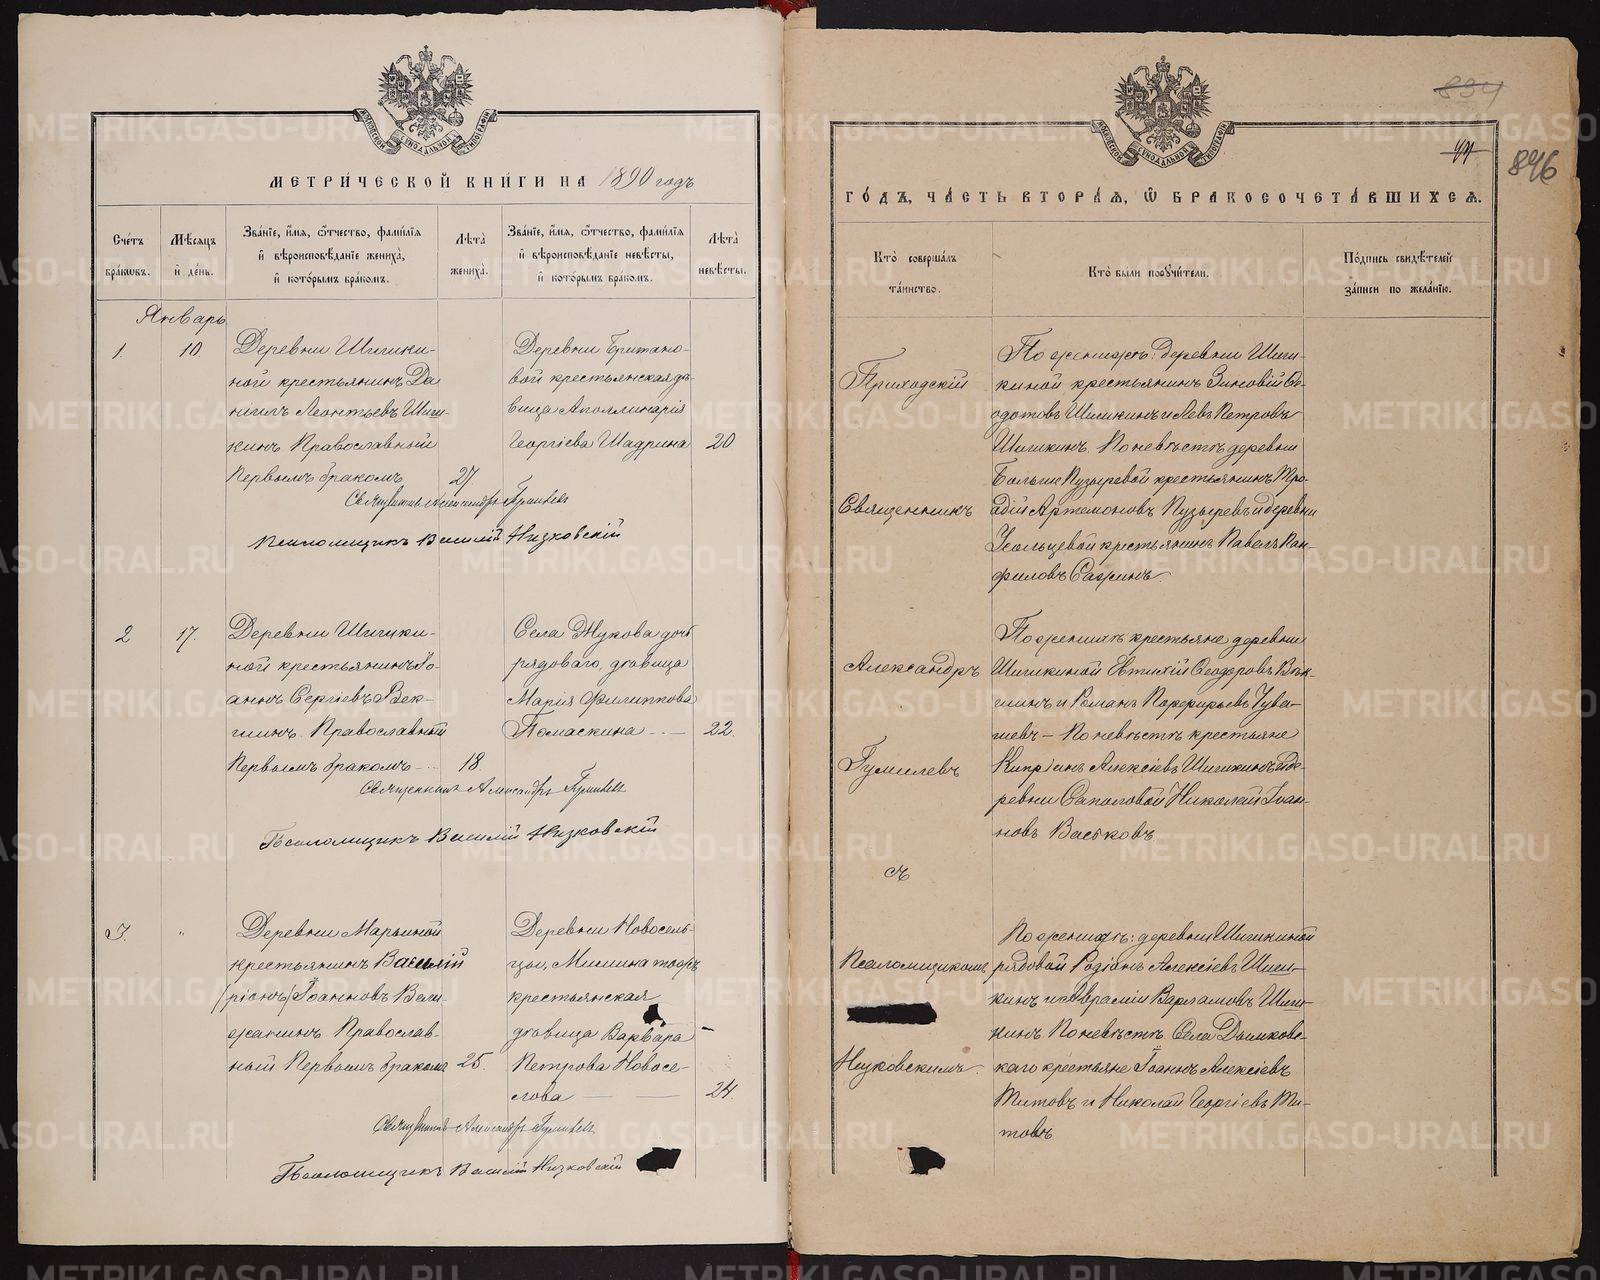 МОСКОВСКОЙ СѴНОДАЛЬНОЙ ТИПОГРАФІИ
МЕТРИ́ЧЕСКОЙ КНИ́ГИ НА 1890 годъ
Сче́тъ бра́кѡвъ.
Мѣ́сяцъ и҆ де́нь.
Зва́нїе, и҆́мѧ, ѻ҆́тчество, фами́лїѧ и҆ вѣроисповѣ́данїе жениха̀, и҆ кото́рымъ бра́комъ.
Лѣ́та жениха̀.
Зва́нїе, и҆́мѧ, ѻ҆́тчество, фами́лїѧ и҆ вѣроисповѣ́данїе невѣ́сты, и҆ кото́рымъ бра́комъ.
Лѣ́та невѣ́сты.
Январь
1.
10.
Деревни Шишки-
ной крестьянинъ Да
нiилъ Леонтьевъ Шиш-
кинъ Православный
Первымъ бракомъ
27
Деревни Британо-
вой крестьянская дѣ-
вица Аполлинарія
Георгіева Шадрина
20
Священникъ Александръ Гумилевъ
Псаломщикъ Василій Низковскій
2
17.
Деревни Шишки-
ной крестьянинъ Іо-
аннъ Сергіевъ Век-
шинъ. Православный
Первымъ бракомъ
18
Села Жукова дочь
рядоваго, дѣвица
Марія Филиппова
Помаскина
22.
Священникъ Александръ Гумилевъ
Псаломщикъ Василій Низковскій
3.
"
Деревни Марьиной
крестьянинъ Василій
(ріонъ) Іоанновъ Веш-
жанинъ Православ-
ный Первымъ бракомъ
25.
Деревни Новосель-
цы, Мишина тожъ
крестьянская
дѣвица Варвара
Петрова Новосе-
лова
24.
Священникъ Александръ Гумилевъ
Псаломщикъ Василій Низковскій
МОСКОВСКОЙ СѴНОДАЛЬНОЙ ТИПОГРАФІИ
834
44
846
ГО́ДЪ, ЧА́СТЬ ВТОРА́Ѧ, Ѡ҆ БРАКОСОЧЕТА́ВШИХСѦ.
Кто̀ соверша́лъ та́инство.
Кто̀ бы́ли порꙋчи́тели.
По́дпись свидѣ́телей за́писи по жела́нїю.
Приходскій
Священникъ
Александръ
Гумилевъ
съ
Псаломщикомъ
Низковскимъ.
По женихѣ: деревни Шиш-
киной крестьянинъ Зиновій Ѳе-
одотовъ Шишкинъ и Левъ Петровъ
Шишкинъ. По невѣстѣ деревни
Больше Пузыревой крестьянинъ Иро-
дій Артемоновъ Пузыревъ и деревни
Усольцевой крестьянинъ Павелъ Пан-
филовъ Сажинъ
По женихѣ крестьяне деревни
Шишкиной Евтихій Ѳеодоровъ Век-
шинъ и Романъ Порфирьевъ Чува-
шевъ – По невѣстѣ крестьяне
Кипріанъ Алексіевъ Шишкинъ и де-
ревни Саполовой Николай Іоан-
новъ Васьковъ
По женихѣ: деревни Шишкиной
рядовой Родіонъ Алексіевъ Шиш-
кинъ и Авраамій Варламовъ Шиш-
кинъ По невѣстѣ Села Дымковс-
каго крестьяне Іоаннъ Алексіевъ
Титовъ и Николай Георгіевъ Ти-
товъ
METRIKI.GASO-URAL.RU